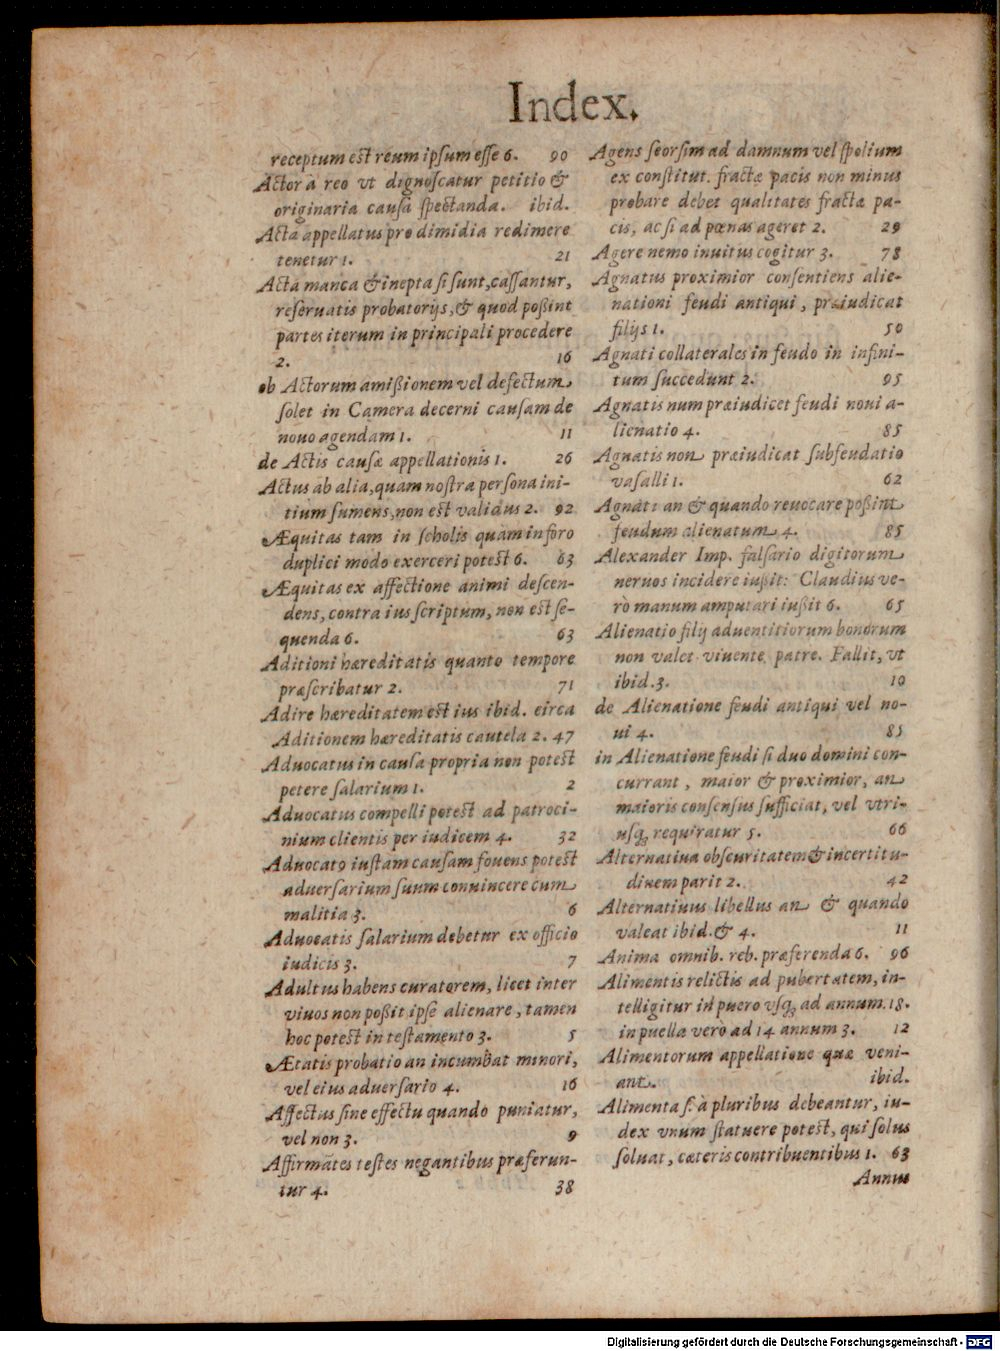 Index.
receptum est reum ipsum esse 6. 90
Actor à reo vt dignoscatur petitio &
originaria causa spectanda. ibid.
Acta appellatus pro dimidia redimere
tenetur 1. 21
Acta manca & inepta si sunt, cassantur,
reseruatis probatorijs, & quod poßint
partes iterum in principali procedere
2. 16
ob Actorum amißionem vel defectum
solet in Camera decerni causam de
nouo agendam 1. 11
de Actis causæ appellationis 1. 26
Actus ab alia, quam nostra persona ini-
tium sumens, non est validus 2. 92
Æquitas tam in scholis quàm in foro
duplici modo exerceri potest 6. 63
Æquitas ex affectione animi descen-
dens, contra ius scriptum, non est se-
quenda 6. 63
Aditioni hæreditatis quanto tempore
præscribatur 2. 71
Adire hæreditatem est ius ibid. circa
Aditionem hæreditatis cautela 2. 47
Aduocatus in causa propria non potest
petere salarium 1. 2
Aduocatus compelli potest ad patroci-
nium clientis per iudicem 4. 32
Aduocatꝰ iustam causam fouens potest
aduersarium suum conuincere cum
malitia 3. 6
Aduocatis salarium debetur ex officio
iudicis 3. 7
Adultus habens curatorem, licet inter
viuos non poßit ipse alienare, tamen
hoc potest in testamento 3. 5
Ætatis probatio an incumbat minori,
vel eius aduersario 4. 16
Affectus sine effectu quando puniatur,
vel non 3. 9
Affirmātes testes negantibus præferun-
tur 4. 38
Agens seorsim ad damnum vel spolium
ex constitut. fractæ pacis non minus
probare debet qualitates fractæ pa-
cis, ac si ad pœnas ageret 2. 29
Agere nemo inuitus cogitur 3. 78
Agnatus proximior consentiens alie-
nationi feudi antiqui, præiudicat
filijs 1. 50
Agnati collaterales in feudo in infini-
tum succedunt 2. 95
Agnatis num præiudicet feudi noui a-
lienatio 4. 85
Agnatis non præiudicat subfeudatio
vasalli 1. 62
Agnati an & quando reuocare poßint
feudum alienatum 4. 85
Alexander Imp. falsario digitorum
neruos incidere iußit: Claudius ve-
rò manum amputari iußit 6. 65
Alienatio filij aduentitiorum bonorum
non valet viuente patre. Fallit, vt
ibid. 3. 10
de Alienatione feudi antiqui vel no-
ui 4. 85
in Alienatione feudi si duo domini con-
currant, maior & proximior, an
maioris consensus sufficiat, vel vtri-
usq; requiratur 5. 66
Alternatiua obscuritatem & incertitu-
dinem parit 2. 42
Alternatiuus libellus an & quando
valeat ibid. & 4. 11
Anima omnib. reb. præferenda 6. 96
Alimentis relictis ad pubertatem, in-
telligitur in puero vsq; ad annum. 18.
in puella verò ad 14 annum 3. 12
Alimentorum appellatione quæ veni-
ant. ibid.
Alimenta si à pluribus debeantur, iu-
dex vnum statuere potest, qui solus
soluat, cæteris contribuentibus 1. 63
Annus
Digitalisierung gefördert durch die Deutsche Forschungsgemeinschaft - DFG